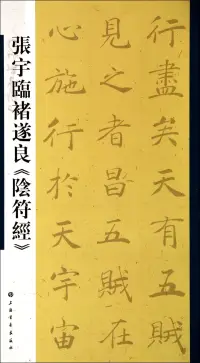 張宇臨褚遂良《陰符經》
行盡矣天有五賊
見之者昌五賊在
心施行於天宇宙
上海書畫出版社